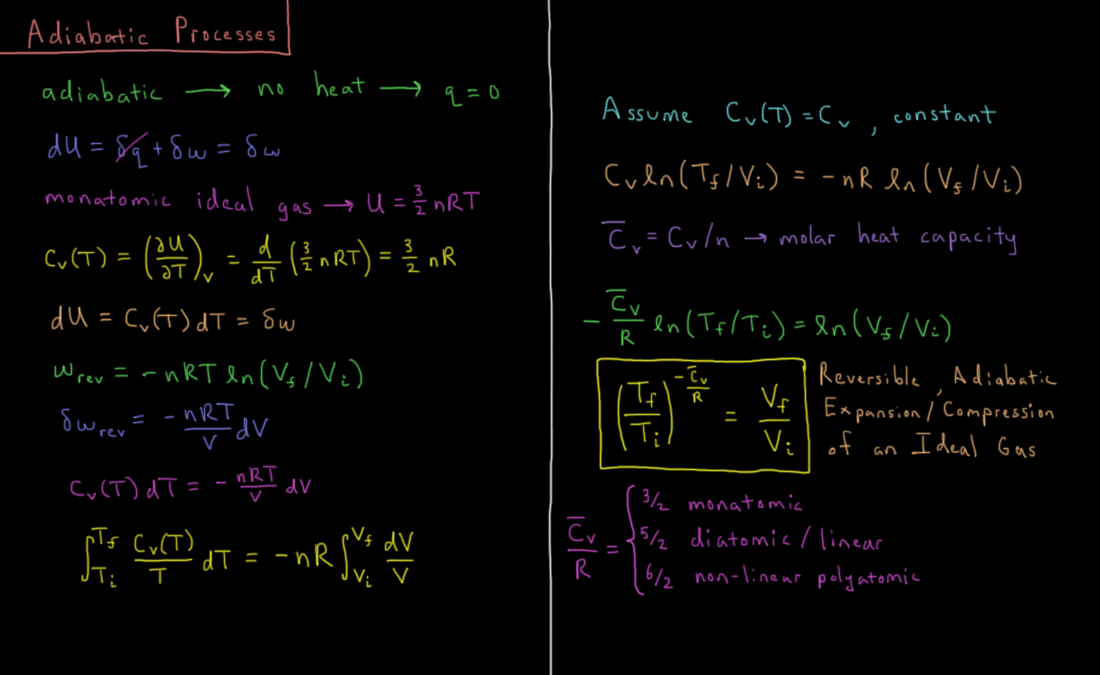 Adiabatic Processes
adiabatic ⟶ no heat ⟶ q = 0
dU = δq + δw = δw
monatomic ideal gas → U = 3/2 nRT
Cv(T) = (∂U/∂T)v = d/dT (3/2 nRT) = 3/2 nR
dU = Cv(T) dT = δw
wrev = -nRT ln(Vf/Vi)
δwrev = -nRT/V dV
Cv(T) dT = -nRT/V dV
∫_Ti^Tf Cv(T)/T dT = -nR ∫_Vi^Vf dV/V
Assume Cv(T) = Cv, constant
Cv ln(Tf/Vi) = -nR ln(Vf/Vi)
C̅v = Cv/n → molar heat capacity
-C̅v/R ln(Tf/Ti) = ln(Vf/Vi)
(Tf/Ti)^(-C̅v/R) = Vf/Vi
Reversible, Adiabatic
Expansion/Compression
of an Ideal Gas
C̅v/R = { 3/2 monatomic
5/2 diatomic/linear
6/2 non-linear polyatomic